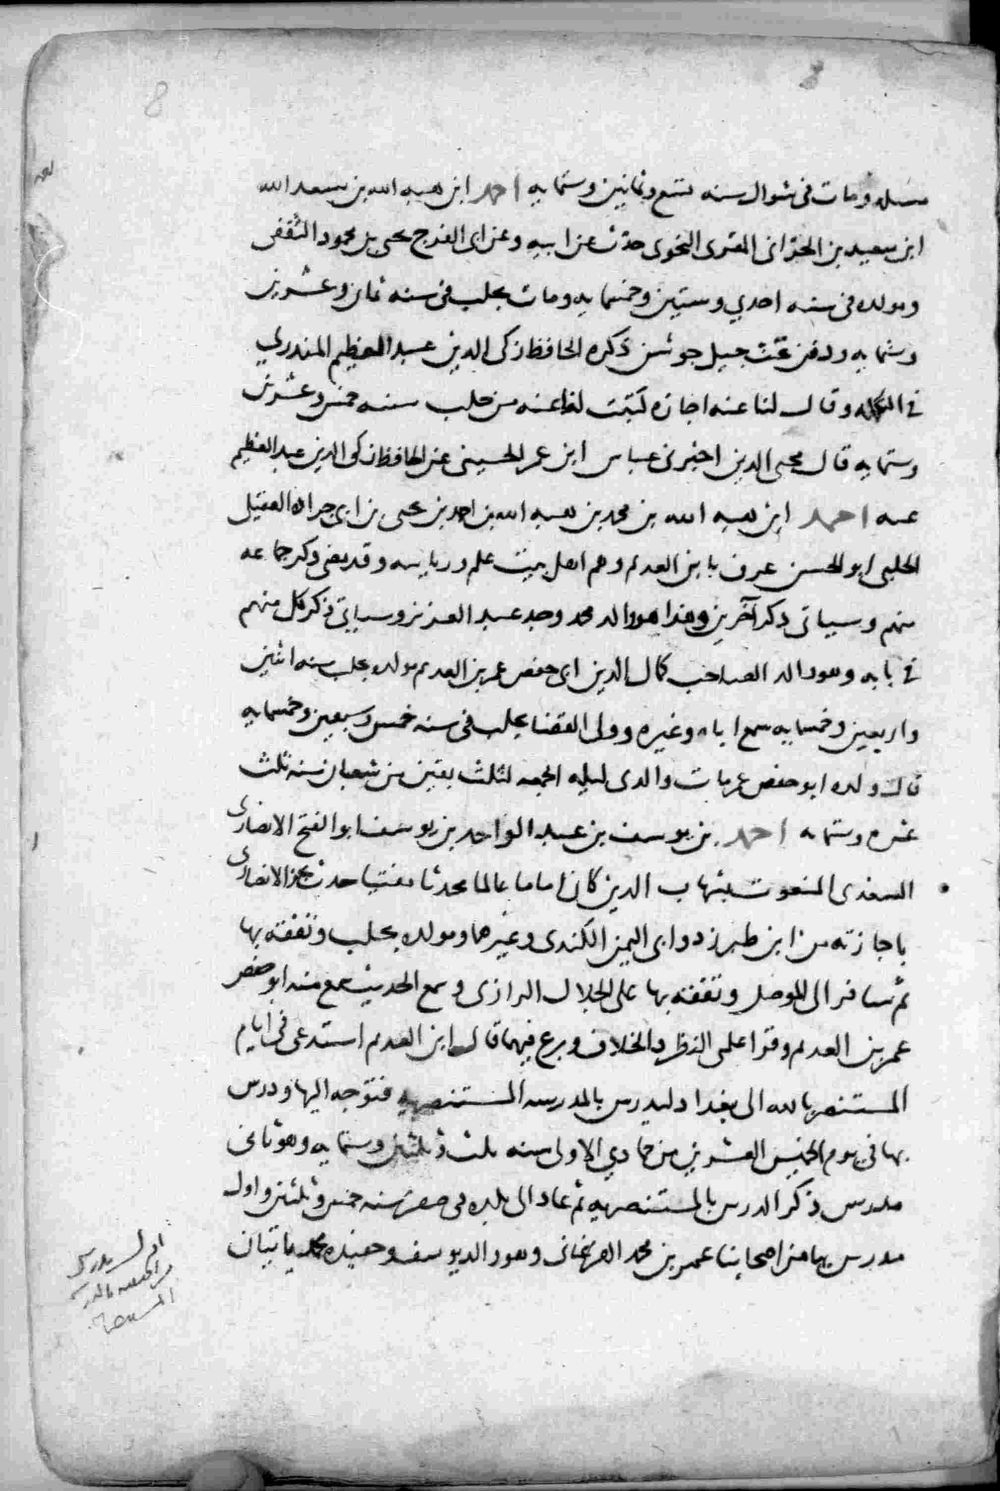 مسله ومات فى شوال سنه تسع وثمانين وستمايه احمد ابن هبه الله بن سعد الله
ابن سعيد بن الحزانى المقرى النحوى حدث عن ابيه وعن ابى الفرج يحيى بن محمود الثقفى
ومولده فى سنه احدي وستين وخمسمايه ومات بحلب فى سنه ثمان وعشرين
وستمايه ودفن تحت جبل جوشن ذكره الحافظ زكى الدين عبد العظيم المنذري
فى التكمله وقال لنا عنه اجازه كتبت لنا عنه من حلب سنه خمس وعشرين
وستمايه قال محيى الدين اخبرنى عباس ابن عمر الحسينى عن الحافظ زكى الدين عبد العظيم
عنه احمد ابن هبه الله بن محمد بن هبه الله بن احمد بن يحيى بن ابى جراده العقيلى
الحلبى ابو الحسن عرف بابن العديم وهم اهل بيت علم ورياسه وقد مضى ذكر جماعه
منهم وسياتى ذكر آخرين وهذا هو والد محمد وجد عبد العزيز وسياتى ذكر كل منهم
فى بابه وهو والد الصاحب كمال الدين ابى حفص عمر بن العديم مولده بحلب سنه اثنين
واربعين وخمسمايه سمع اباه وغيره وولى القضا بحلب فى سنه خمس وسبعين وخمسمايه
قال ولده ابو حفص عمر مات والدى ليله الجمعه لثلث بقين من شعبان سنه ثلث
عشره وستمايه احمد بن يوسف بن عبد الواحد بن يوسف ابو الفتح الانصارى
السعدى المنعوت بشهاب الدين كان اماما عالما محدثا مفتيا حدث بجزء الانصارى
باجازته من ابن طبرزد وابى اليمن الكندى وغيرهما ومولده بحلب وتفقه بها
ثم سافر الى الموصل وتفقه بها على الجلال الرازى وسمع الحديث سمع منه ابو حفص
عمر بن العديم وقرا على النظر والخلاف وبرع فيهما قال ابن العديم استدعى فى ايام
المستنصر بالله الى بغداد ليدرس بالمدرسه المستنصريه فتوجه اليها ودرس
بها فى يوم الخميس العشرين من جمادي الاولى سنه ثلث وثلثين وستمايه وهو ثانى
مدرس ذكر الدرس بالمستنصريه ثم عاد الى بلده فى صفر سنه خمس وثلثين واول
مدرس بها من اصحابنا عمر بن محمد الفرغانى وهو والد يوسف وحفيده محمد ياتيان